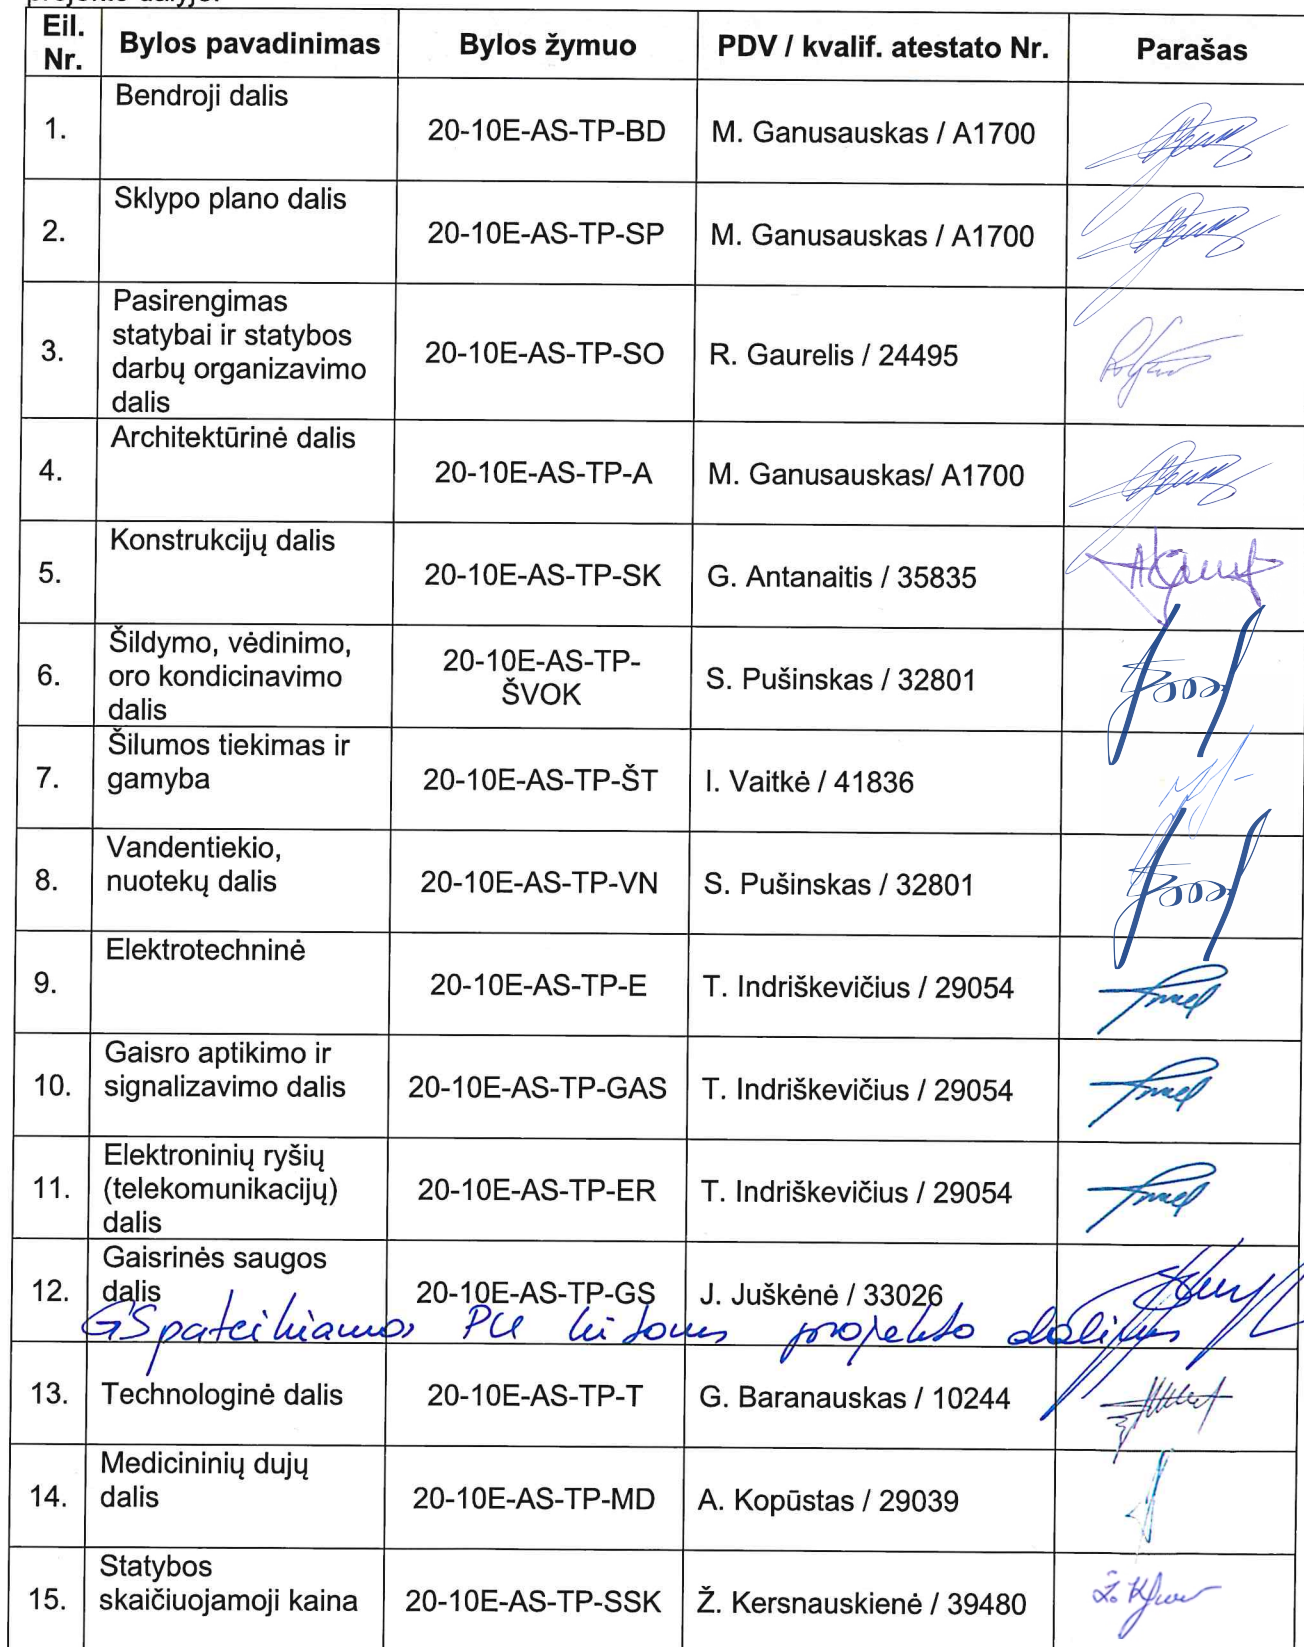 Eil. Nr. Bylos pavadinimas Bylos žymuo PDV / kvalif. atestato Nr. Parašas
1. Bendroji dalis 20-10E-AS-TP-BD M. Ganusauskas / A1700
2. Sklypo plano dalis 20-10E-AS-TP-SP M. Ganusauskas / A1700
3. Pasirengimas
statybai ir statybos
darbų organizavimo
dalis
20-10E-AS-TP-SO R. Gaurelis / 24495
4. Architektūrinė dalis 20-10E-AS-TP-A M. Ganusauskas/ A1700
5. Konstrukcijų dalis 20-10E-AS-TP-SK G. Antanaitis / 35835
6. Šildymo, vėdinimo,
oro kondicinavimo
dalis
20-10E-AS-TP-
ŠVOK
S. Pušinskas / 32801
7. Šilumos tiekimas ir
gamyba
20-10E-AS-TP-ŠT I. Vaitkė / 41836
8. Vandentiekio,
nuotekų dalis
20-10E-AS-TP-VN S. Pušinskas / 32801
9. Elektrotechninė 20-10E-AS-TP-E T. Indriškevičius / 29054
10. Gaisro aptikimo ir
signalizavimo dalis
20-10E-AS-TP-GAS T. Indriškevičius / 29054
11. Elektroninių ryšių
(telekomunikacijų)
dalis
20-10E-AS-TP-ER T. Indriškevičius / 29054
12. Gaisrinės saugos
dalis
20-10E-AS-TP-GS J. Juškėnė / 33026
GS pateikiamos kitoms projekto dalims
13. Technologinė dalis 20-10E-AS-TP-T G. Baranauskas / 10244
14. Medicininių dujų
dalis
20-10E-AS-TP-MD A. Kopūstas / 29039
15. Statybos
skaičiuojamoji kaina
20-10E-AS-TP-SSK Ž. Kersnauskienė / 39480